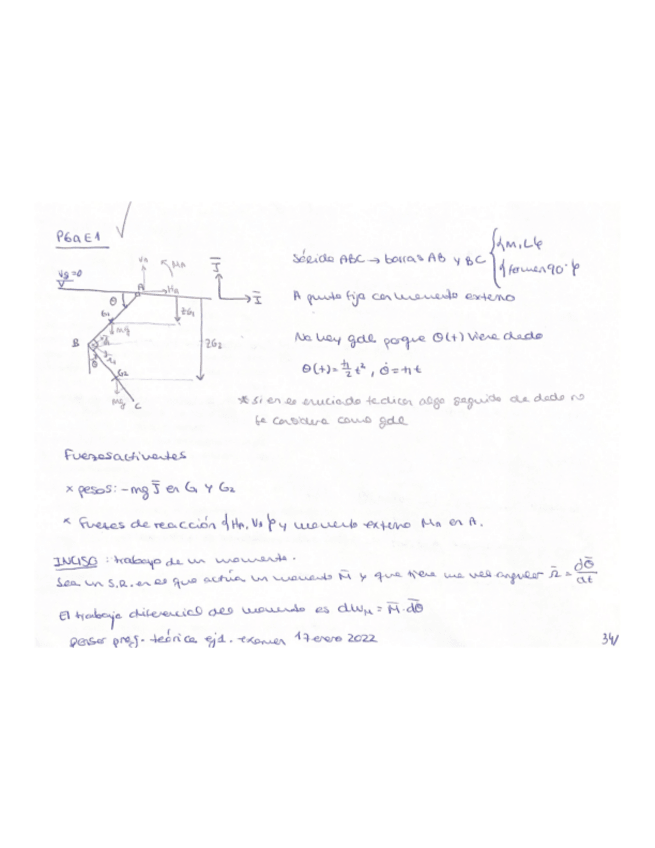 P6a E1
Sólido ABC → barras AB y BC { {M, L}
{forman 90º}
Vg=0
A
HA
VA
MA
J
I
θ
G1
mg
ZG1
ZG2
B
θ
G2
mg
C
A punto fijo con momento externo
No hay gdl porque θ(t) viene dado
θ(t) = η/2 t², θ̇ = ηt
* si en el enunciado te dicen algo seguido de dado no
se considera como gdl
Fuerzas actuantes
x pesos: -mg J en G y G2
x Fuerzas de reacción {HA, VA} y momento externo MA en A.
INCISO: trabajo de un momento.
Sea un S.R. en el que actúa un momento M y que tiene una vel angular Ω = dθ/dt
El trabajo diferencial del momento es dWM = M·dθ
preg. teórica ej1. examen 17 enero 2022
34